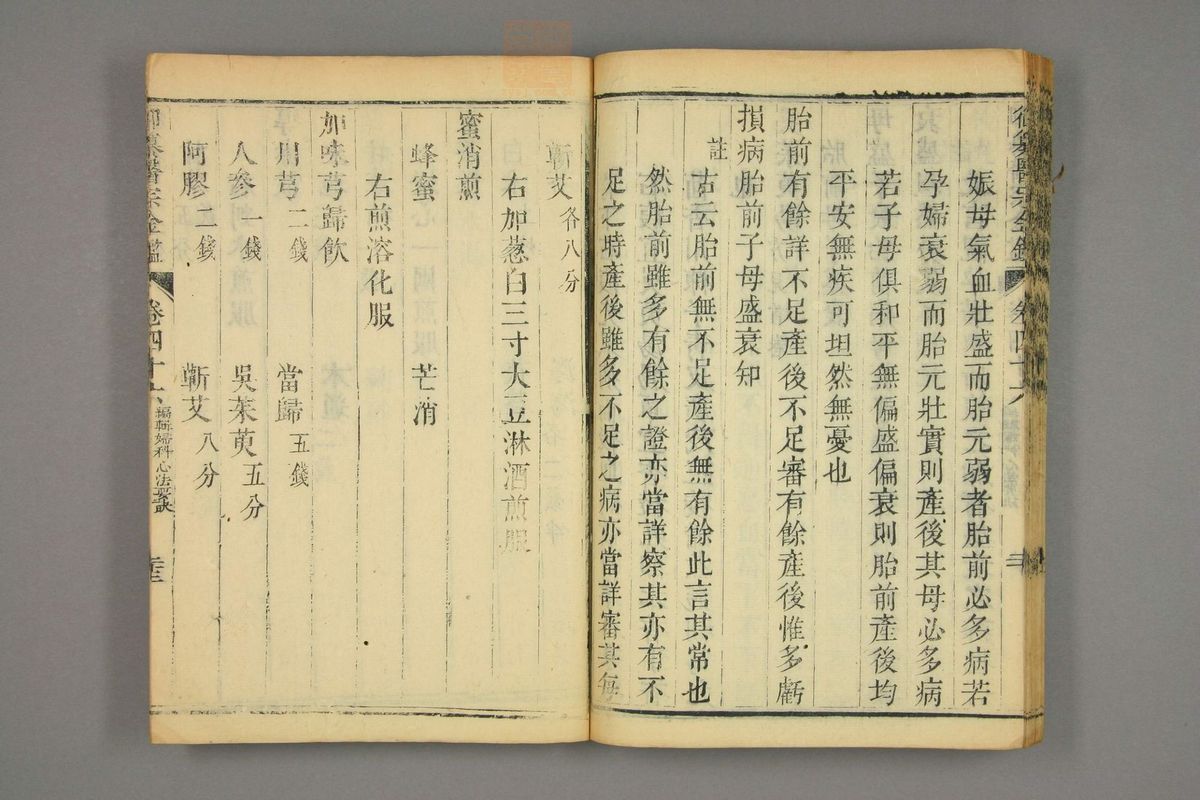 御纂醫宗金鑑 卷四十六
娠母氣血壯盛而胎元弱者胎前必多病若
孕婦衰弱而胎元壯實則產後其母必多病
若子母俱和平無偏盛偏衰則胎前產後均
平安無疾可坦然無憂也
胎前有餘詳不足產後不足審有餘產後惟多虧
損病胎前子母盛衰知
註古云胎前無不足產後無有餘此言其常也
然胎前雖多有餘之證亦當詳察其亦有不
足之時產後雖多不足之病亦當詳審其每
蘄艾各八分
右加葱白三寸大豆淋酒煎服
蜜消煎
蜂蜜 芒消
右煎溶化服
加味芎歸飲
川芎二錢 當歸五錢
人參一錢 吳茱萸五分
阿膠二錢 蘄艾八分
御纂醫宗金鑑 卷四十六 編輯婦科心法要訣